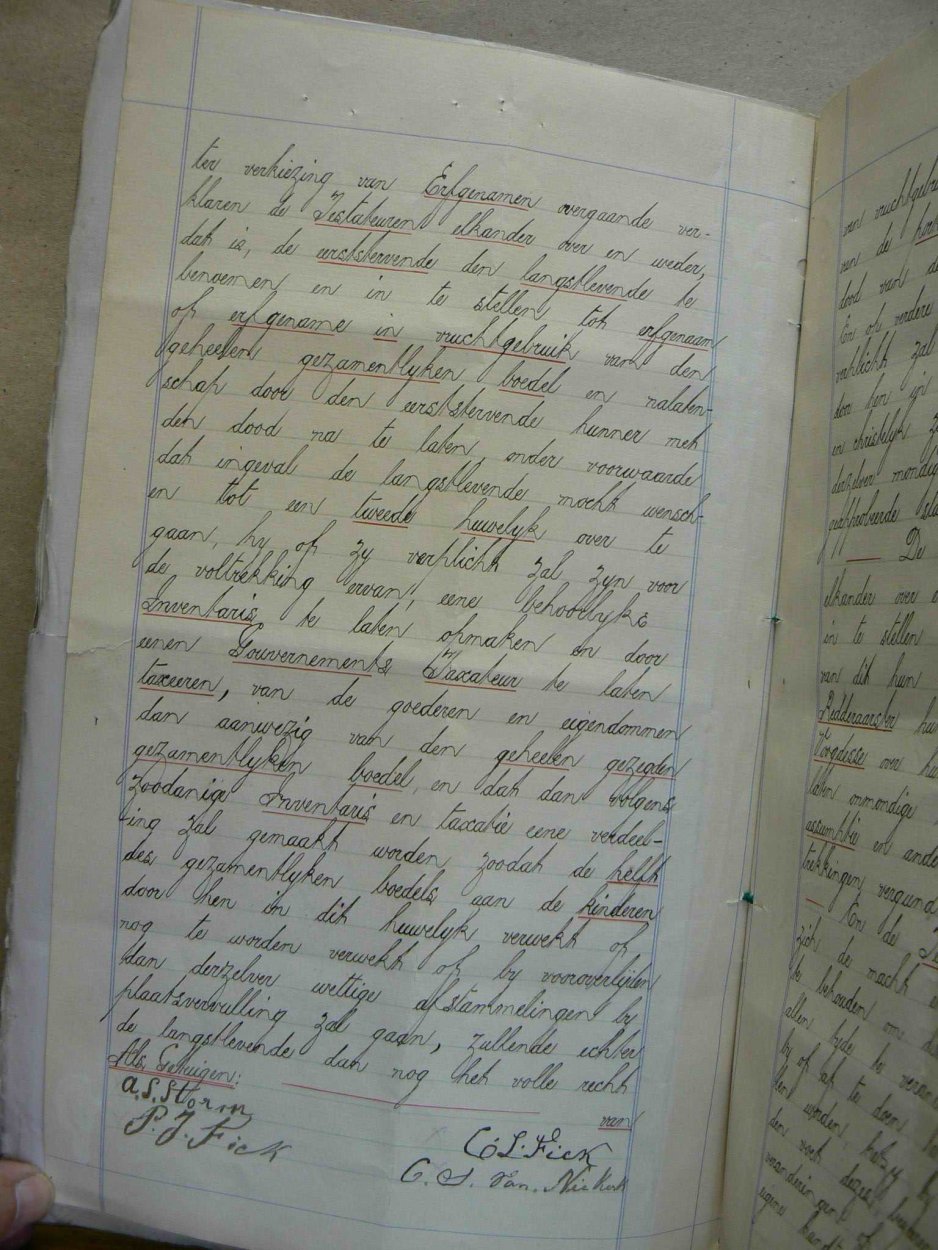 ter verkiezing van Erfgenamen overgaande ver-
klaren de Testateuren elkander over en weder,
dat is, de eerststervende den langstlevende te
benoemen en in te stellen tot erfgenaam
of erfgename in vruchtgebruik van den
geheelen gezamentlyken boedel en nalaten-
schap door den eerststervende hunner met
den dood na te laten, onder voorwaarde
dat ingeval de langstlevende mocht wensch-
en tot een tweede huwelyk over te
gaan, hy of zy verplicht zal zyn voor
de voltrekking ervan, eene behoorlyke
Inventaris te laten opmaken en door
eenen Gouvernements Taxateur te laten
taxeeren, van de goederen en eigendommen
dan aanwezig van den geheelen gezegden
gezamentlyken boedel, en dat dan volgens
zoodanige Inventaris en taxatie eene verdeel-
ing zal gemaakt worden, zoodat de helft
des gezamentlyken boedels aan de kinderen
door hen in dit huwelyk verwekt of
nog te worden verwekt of by vooroverlijden
dan derzelver wettige afstammelingen by
plaatsvervulling zal gaan, zullende echter
de langstlevende dan nog het volle recht
van
Als Getuigen:
A.S. Storm
P. J. Fick
C L. Fick
C. S. Van. Niekerk
van vruchtgebru
van de
dood van de
En of verdere
verplicht zal
door hen in
en christelyk
derzelver mondig
geapprobeerde
De
elkander over e
in te stellen
van dit hun
Redderaarster hu
Voogdesse over h
laten onmondige
assumptie en ande
trekkingen, vergund
En de
zich de macht
te behouden om
allen tyde te veran
by of af te doen
den worden, hetzy by